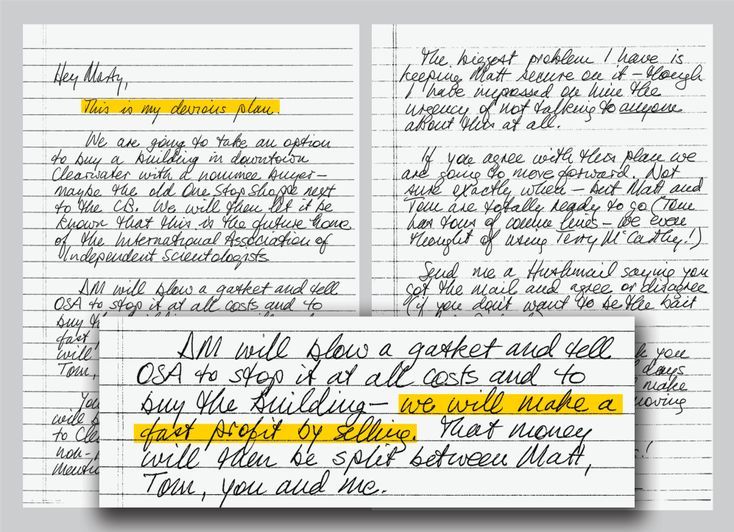 Hey Marty,
This is my devious plan.
We are going to take an option
to buy a building in downtown
Clearwater with a nominee buyer–
maybe the old One Stop Shoppe next
to the CB. We will then let it be
known that this is the future home
of the International Association of
Independent Scientologists
DM will blow a gasket and tell
OSA to stop it at all costs and to
buy the
fast
will
Tom,
You
will
to Cle
non-p
mentio
The biggest problem I have is
keeping Matt secure on it – though
I have impressed on him the
urgency of not talking to anyone
about this at all.
If you agree with this plan we
are going to move forward. Not
sure exactly when – but Matt and
Tom are totally ready to go (Tom
has tons of comm lines – we even
thought of using Terry McCarthy!)
Send me a Hushmail saying you
got the mail and agree or disagree
(if you don't want to be the bait
you
days
make
moving
!
DM will blow a gasket and tell
OSA to stop it at all costs and to
buy the building– we will make a
fast profit by selling. That money
will then be split between Matt,
Tom, you and me.